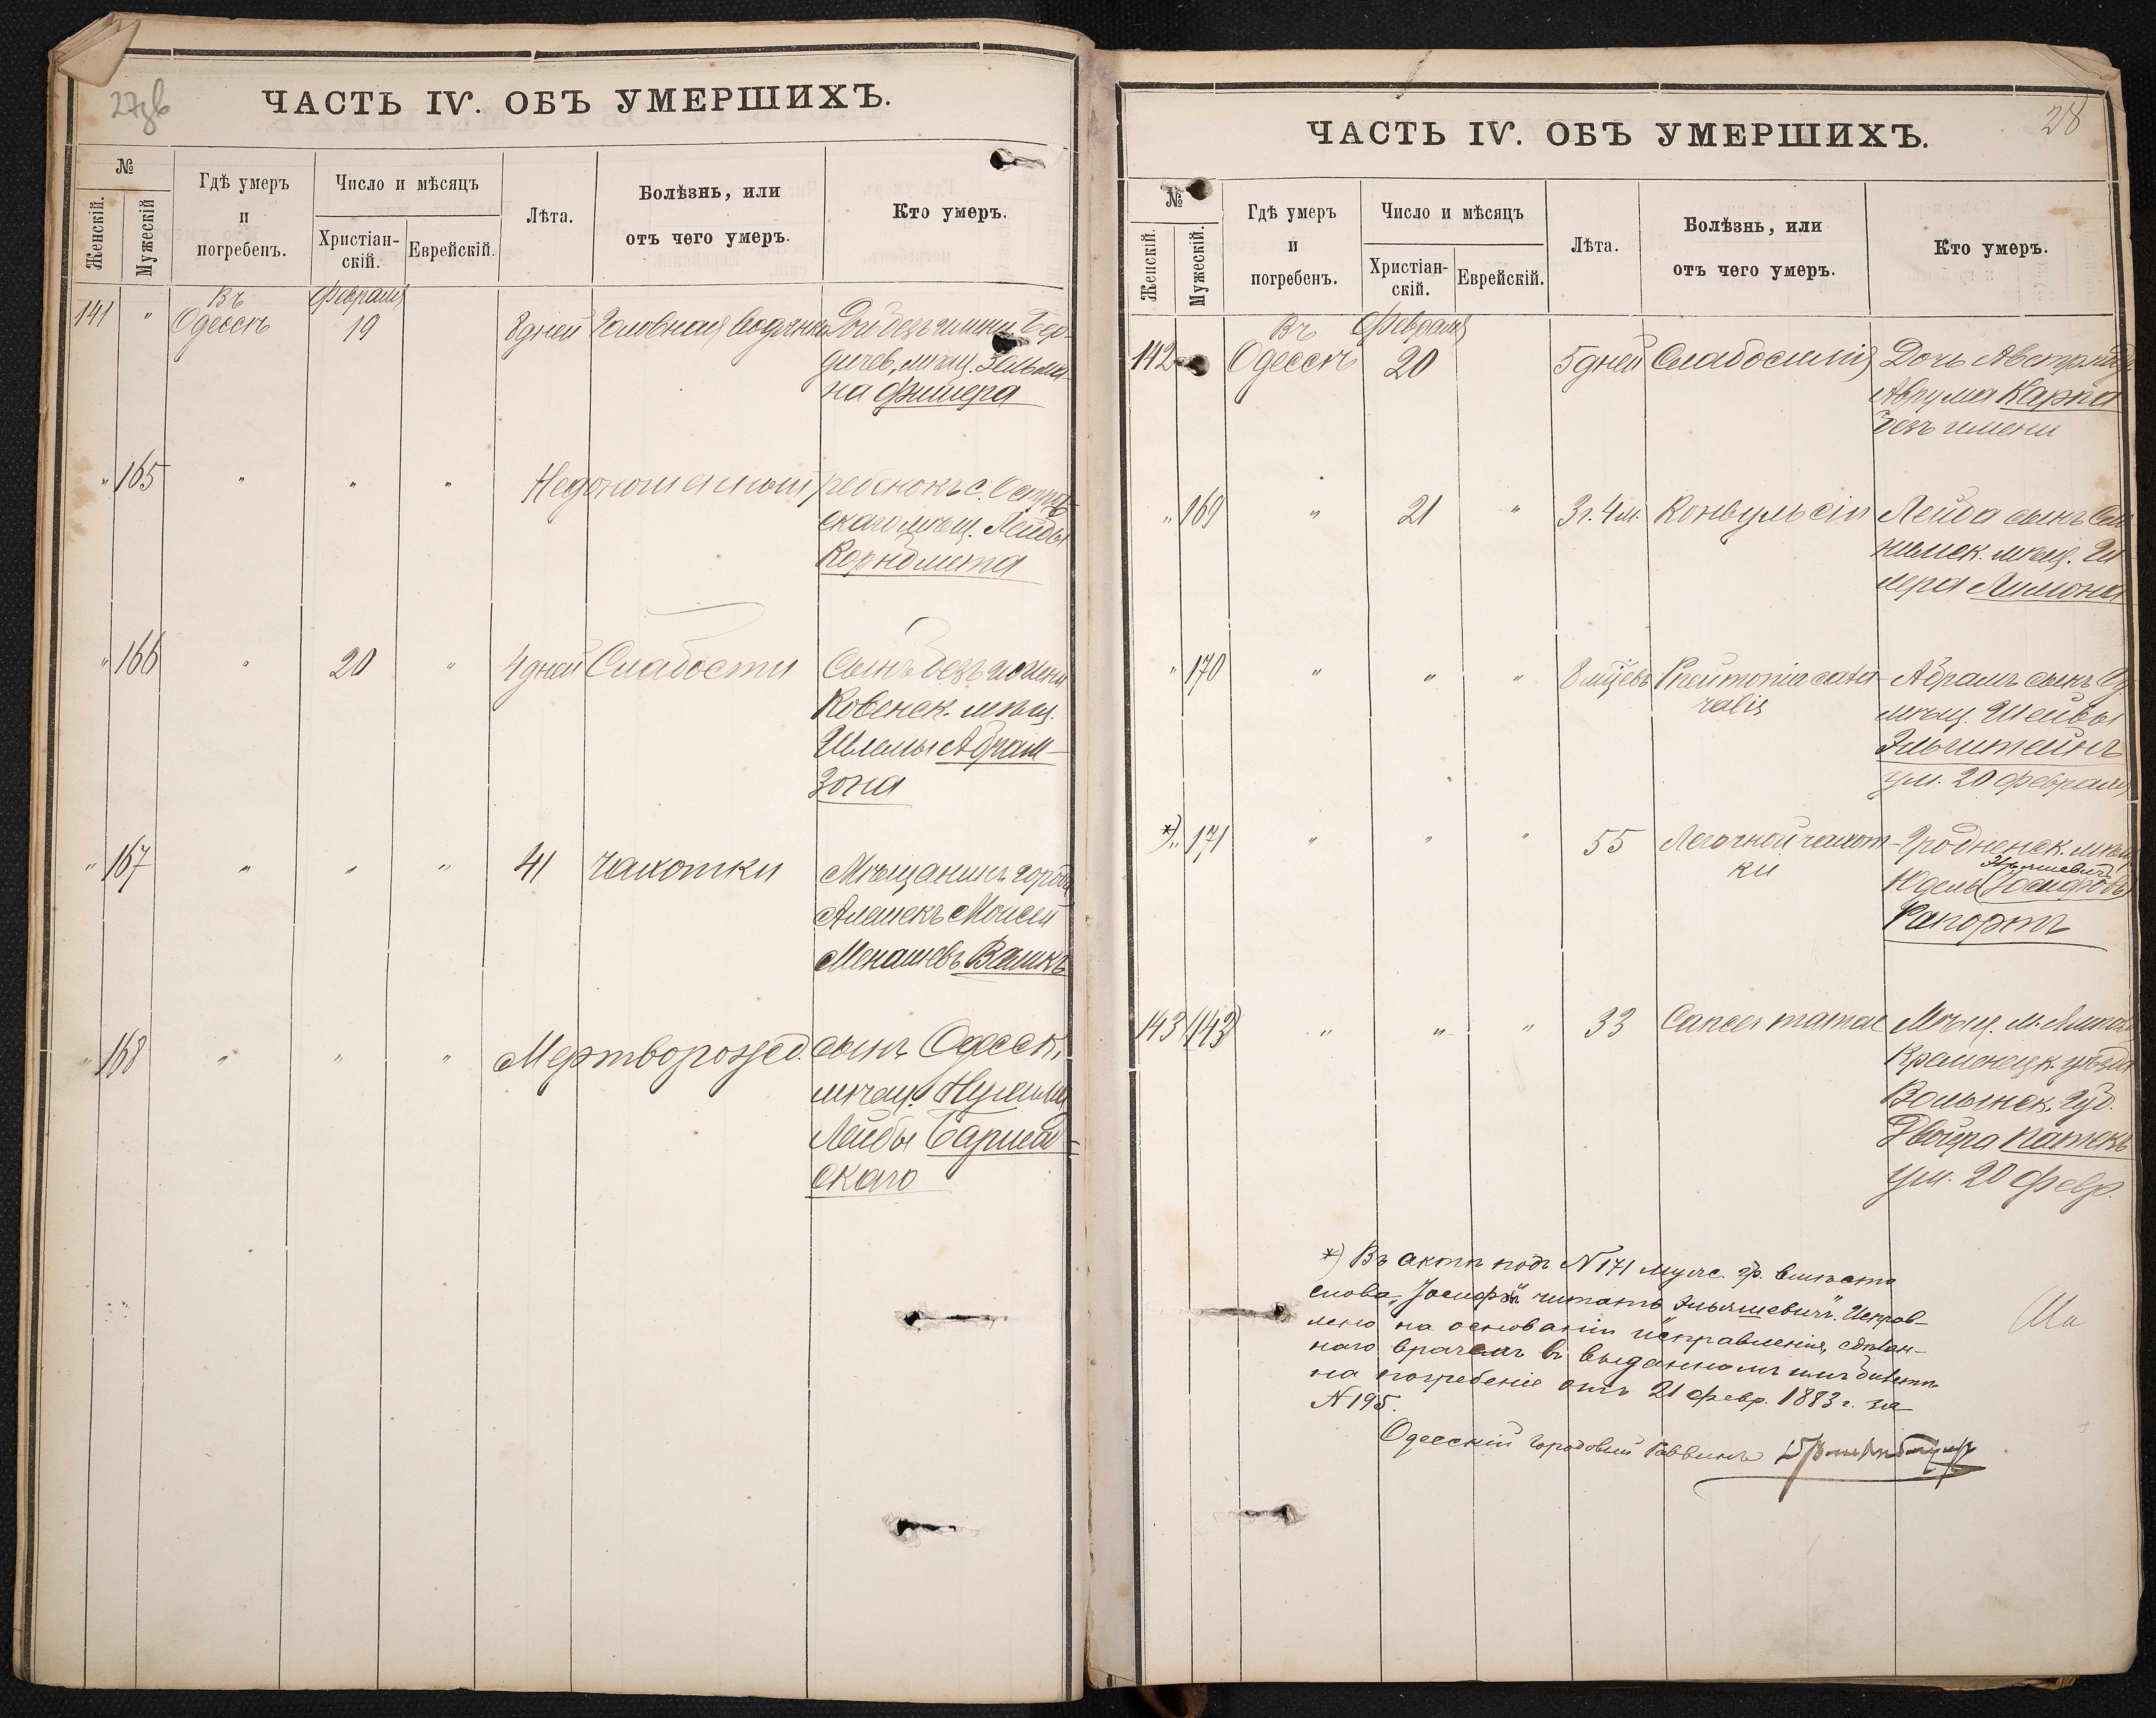 27зв
ЧАСТЬ IV. ОБЪ УМЕРШИХЪ.
№
Женскій.
Мужескій
Гдѣ умеръ
и
погребенъ.
Число и мѣсяцъ
Христіан-
скій.
Еврейскій.
Лѣта.
Болѣзнь, или
отъ чего умеръ.
Кто умеръ.
141 " Въ Одессѣ Февраля 19 8 дней Головная водянка Доч безъ имени Бер-
дичев. мѣщ. Зельма-
на Фишера
" 165 " " " Недоношенный ребенокъ с. Остро-
скаго мѣщ. Лейбы
Корнблита
" 166 " 20 " 4 дней Слабости Сынъ безъ имени
Ковенск. мѣщ.
Шлемы Абрам-
зона
" 167 " " " 41 Чахотки Мѣщанинъ города
Алешекъ Моисей
Менашевъ Вашкъ
" 168 " " " Мертворожд. сынъ Одесск.
мѣщ. Нухима
Лейбы Баршад-
скаго
28
ЧАСТЬ IV. ОБЪ УМЕРШИХЪ.
№
Женскій.
Мужескій.
Гдѣ умеръ
и
погребенъ.
Число и мѣсяцъ
Христіан-
скій.
Еврейскій.
Лѣта.
Болѣзнь, или
отъ чего умеръ.
Кто умеръ.
142 Въ Одессѣ Февраля 20 5 дней Слабосилія Дочь Австр. подд.
Аврума Карпа
безъ имени
" 169 " 21 " 3 г. 4 м. Конвульсіи Лейба сынъ
мѣщ.
мера Лимона
" 170 " " " 8 мѣцевъ Pneumonia catar- Абрамъ сынъ Од.
ralis мѣщ. Шейвы
Эльштейнъ
ум. 20 февраля
*) " 171 " " " 55 Легочной чахот- Гродненск. мѣщ.
ки Юдель (Іосифовъ) Эльяшевичъ
Рапортъ
143 (143) " " " 33 Cancer mamae Мѣщ. м. Ямполя
Кременецк. уѣзда
Волынск. Губ.
Двойра Патекъ
ум. 20 февр.
*) Въ актѣ подъ N 171 мужс. гр. вмѣсто
слова „Іосифъ" читать „Эльяшевичъ". Исправ-
лено на основаніи исправленія, сдѣлан-
наго врачемъ въ выданномъ имъ билетѣ
на погребеніе отъ 21 февр. 1883 г. за
N 195.
Одесскій Городовый Раввинъ